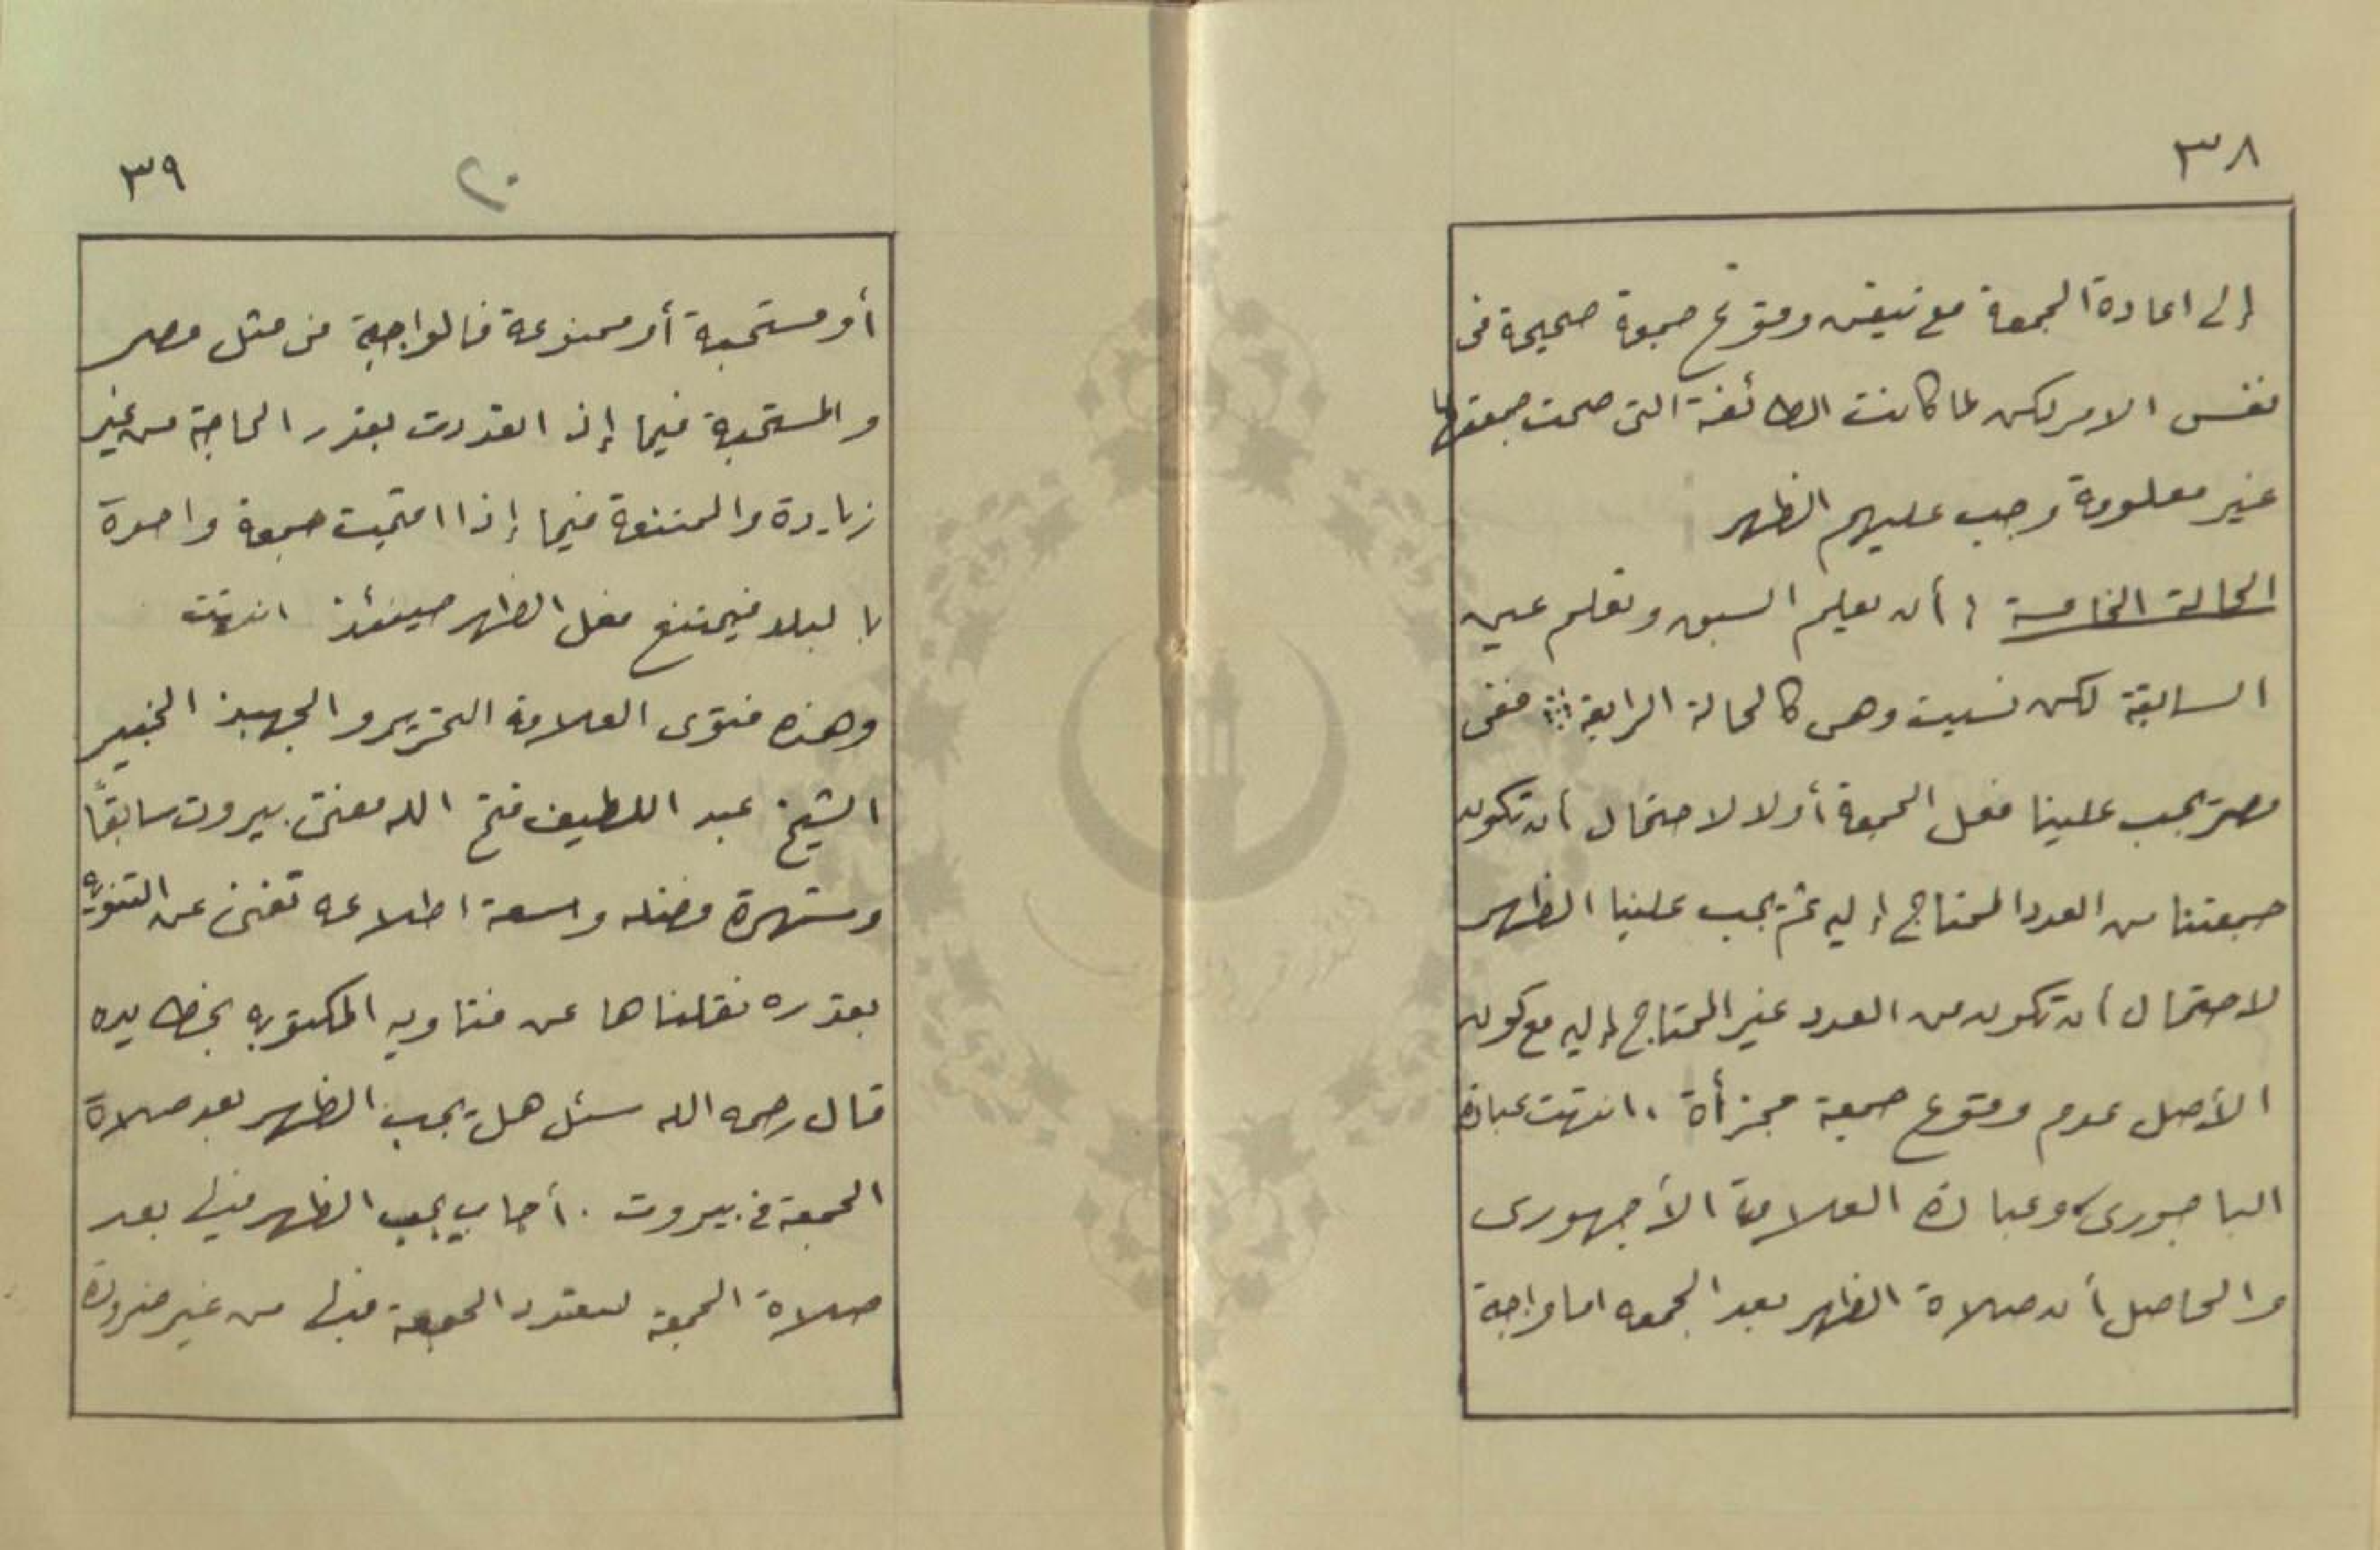 ٣٨
إلى اعادة الجمعة مع تيقن وقوع جمعة صحيحة فى
نفس الامر لكن لما كانت الطائفة التى صحت جمعتها
غير معلومة وجب عليهم الظهر
الحالة الخامسة : أن يعلم السبق وتعلم عين
السابقة لكن نسيت وهى كالحالة الرابعة ففى
مصر يجب علينا فعل الجمعة أولا لاحتمال أن تكون
جمعتنا من العدد المحتاج إليه ثم يجب علينا الظهر
لاحتمال أن تكون من العدد غير المحتاج إليه مع كون
الأصل عدم وقوع جمعة مجزأة . انتهت عبارة
الباجورى، وعبارة العلامة الأجهورى
والحاصل أن صلاة الظهر بعد الجمعه اما واجبة
٣٩
٢٠
أو مستحبة أو ممنوعة فالواجبة فى مثل مصر
والمستحبة فيما إذا تعددت بقدر الحاجة من غير
زيادة والممتنعة فيما إذا اقيمت جمعة واحدة
بالبلد فيمتنع فعل الظهر حينئذ انتهت
وهذه فتوى العلامة النحرير والجهبذ الخبير
الشيخ عبد اللطيف فتح الله مفتى بيروت سابقاً
وشهرة فضله واسعة اطلاعه تغنى عن التنويه
بقدره نقلناها عن فتاويه المكتوبه بخط يده
قال رحمه الله سئل هل يجب الظهر بعد صلاة
الجمعة فى بيروت . أجاب يجب الظهر فيها بعد
صلاة الجمعة لتعدد الجمعة فيها من غير ضرورة